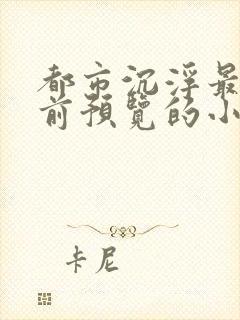 都市沉浮最
前预览的小
卡尼